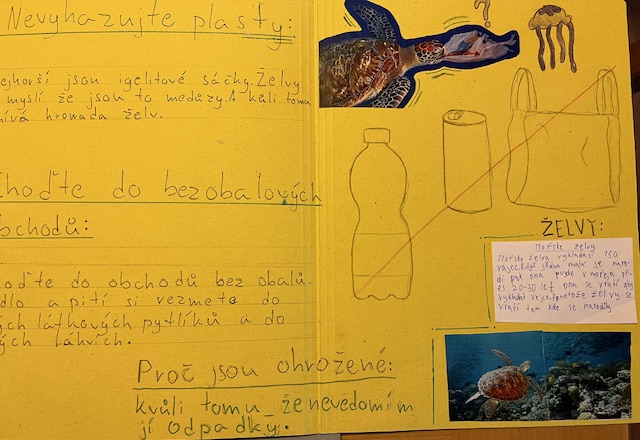 Nevyhazujte plasty:
ejhorší jsou igelitové sáčky. Želvy
myslí že jsou to medůzy. A kůli tomu
hromada želv.
Choďte do bezobalových
bchodů:
oďte do obchodů bez obalů.
dlo a pití si vezmete do
ých látkových pytlíků a do
ých lahvích.
Proč jsou ohrožené:
kvůli tomu že nevědomím
jí odpadky.
?
ŽELVY:
Mořské želvy
Mořské želvy vykládají 150
vajec. Když jedna malá se naro-
dí pak ona pujde v moře a př-
es 20-30 let ona se vrátí aby
vykládat vejce. Protože želvy se
vrátí tam kde se narodily